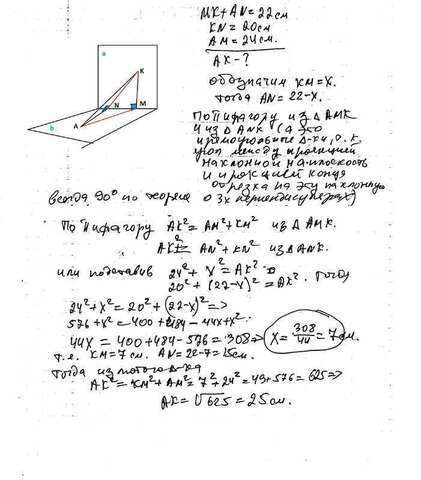 a
K
N
M
A
b
MK+AN=22см
KN=20см
AM=24см.
AK-?
обозначим KM=X.
тогда AN=22-X.
По Пифагору из △AMK
и из △ANK (а это
прямоугольные △-ки, т.к.
угол между проекцией
наклонной на плоскость
и проекцией конца
отрезка на эту наклонную
всегда 90° по теореме о 3х перпендикулярах)
По Пифагору AK²=AM²+KM² из △AMK.
AK²=AN²+KN² из △ANK.
или подставив 24²+X²=AK²
20²+(22-X)²=AK². Тогда
24²+X²=20²+(22-X)²=>
576+X²=400+484-44X+X².
44X=400+484-576=308=> X=308/44=7см.
т.е. KM=7см. AN=22-7=15см.
Тогда из △-ка
AK²=KM²+AM²=7²+24²=49+576=625=>
AK=√625=25см.